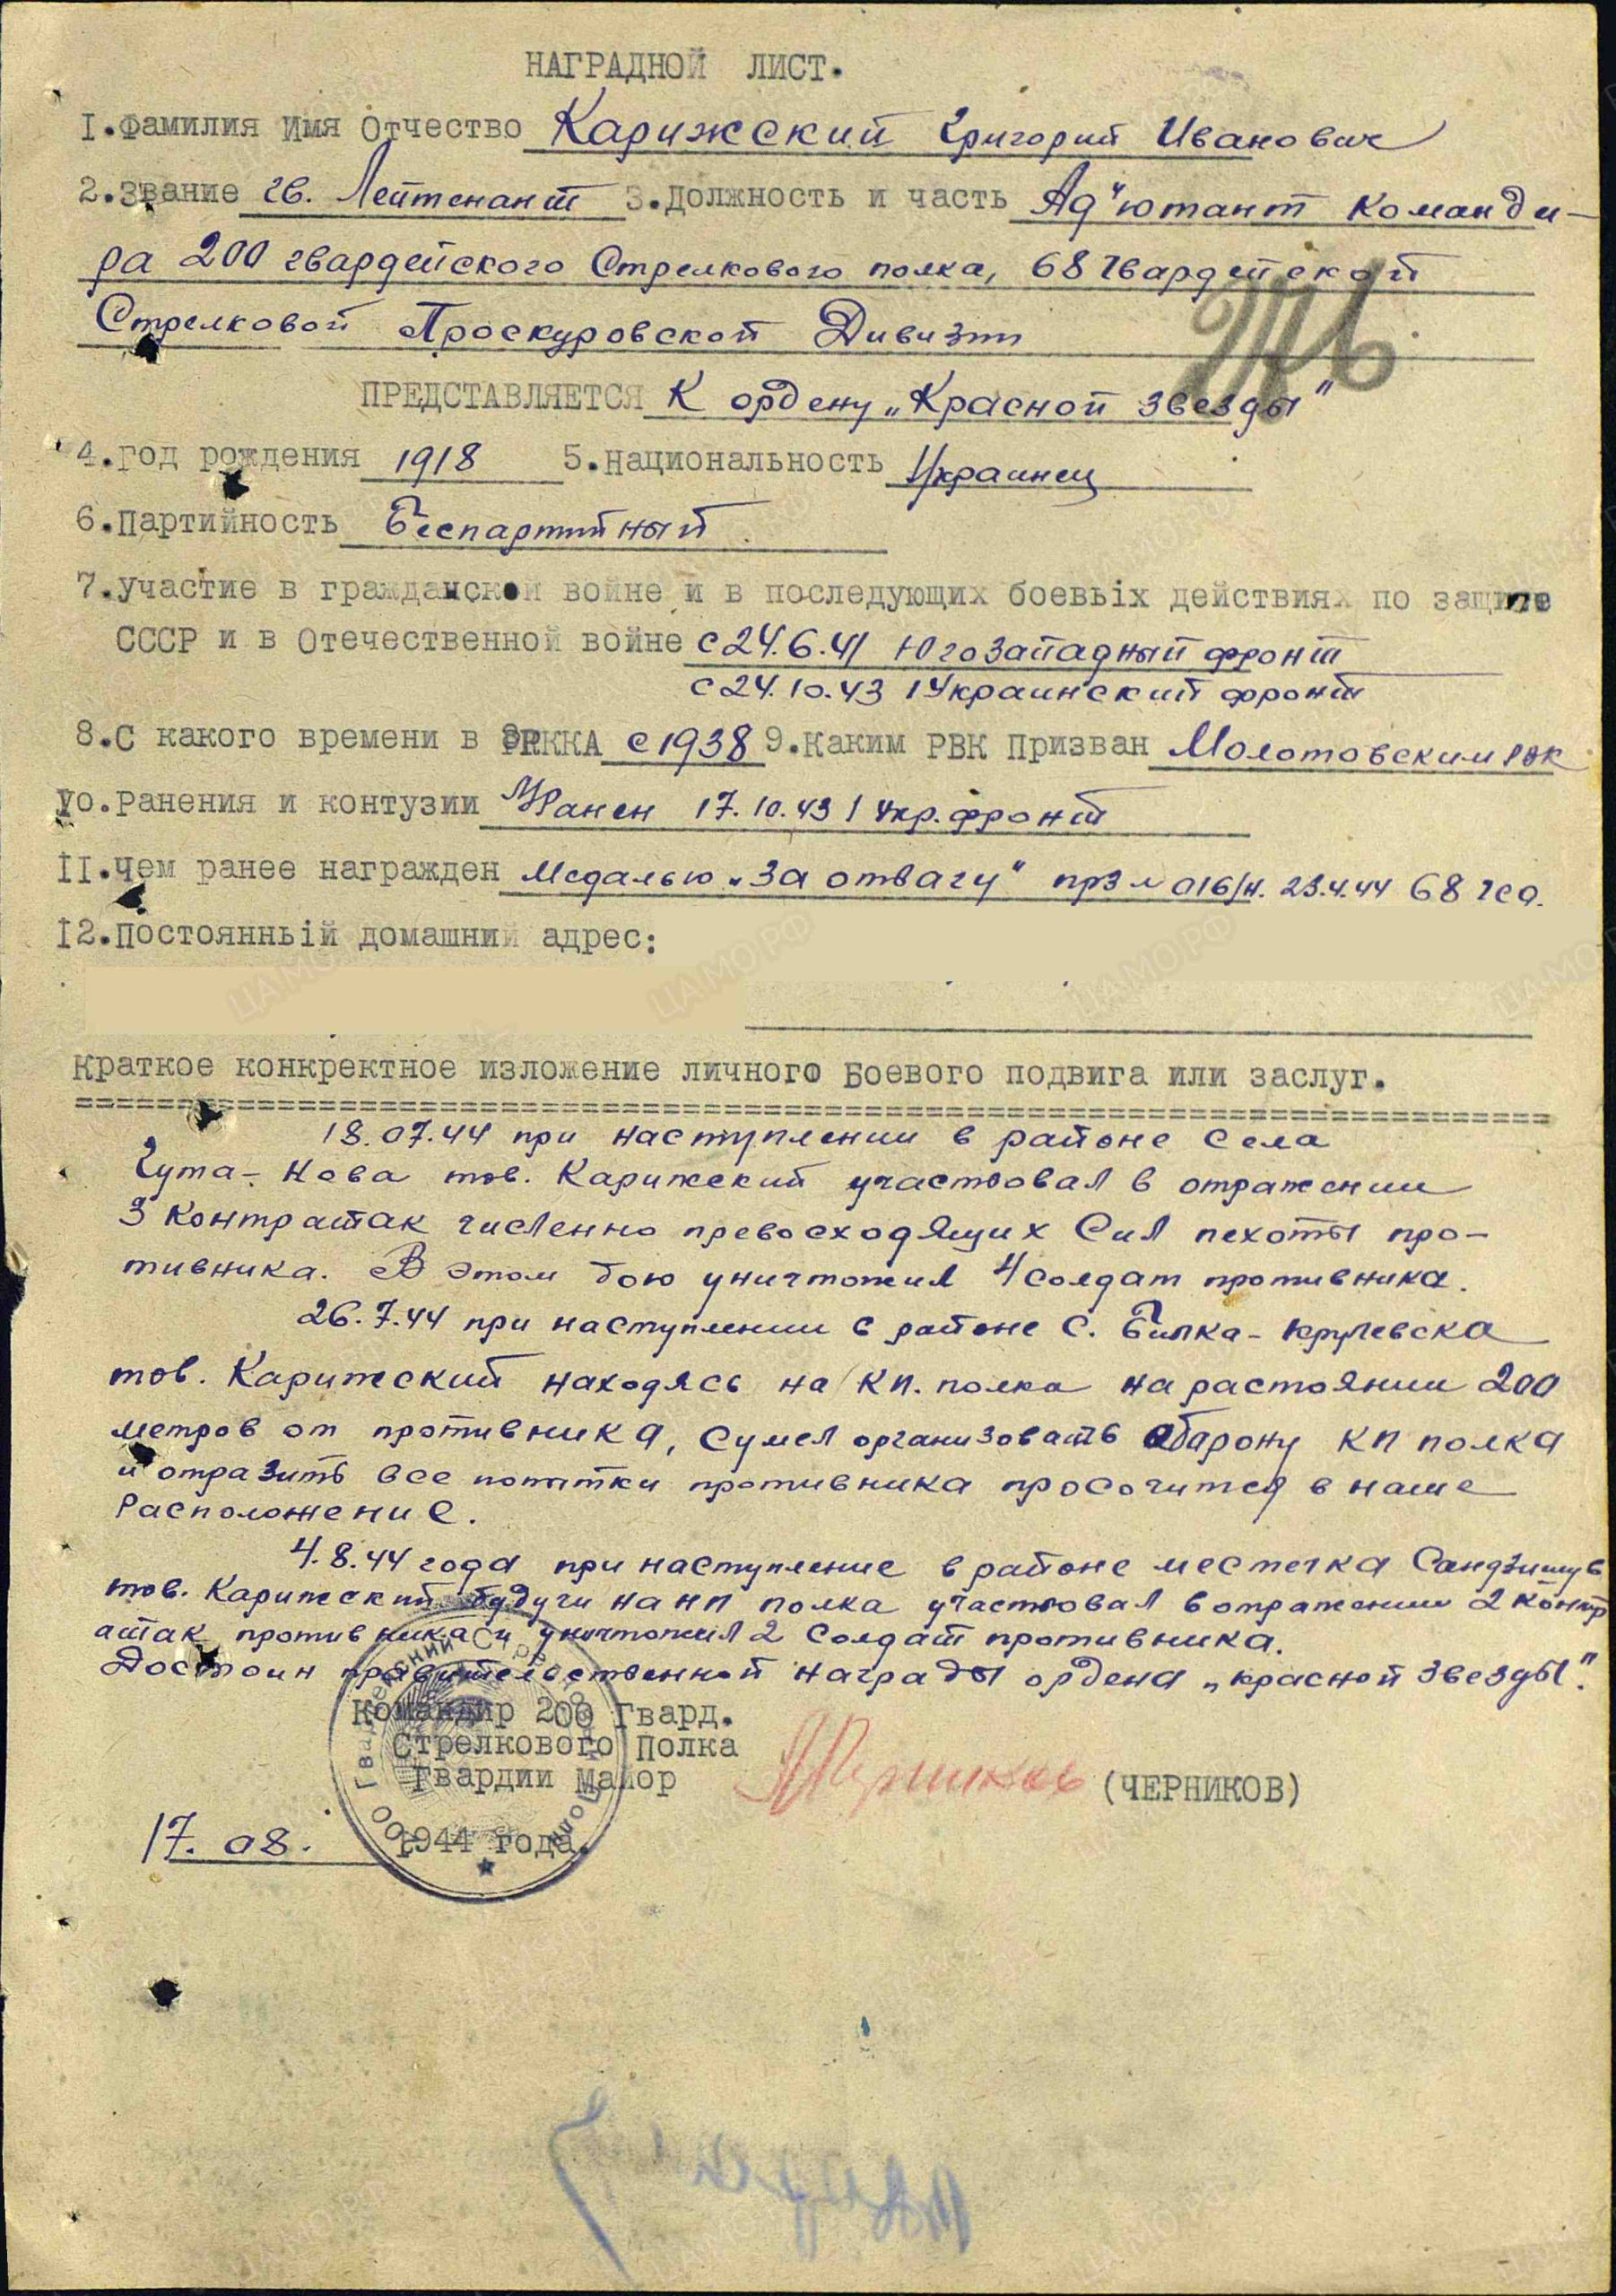 НАГРАДНОЙ ЛИСТ.
I.Фамилия Имя Отчество Карижский Григорий Иванович
2.Звание гв. Лейтенант 3.Должность и часть Ад"ютант команди-
ра 200 гвардейского Стрелкового полка, 68 Гвардейской
Стрелковой Проскуровской Дивизии
ПРЕДСТАВЛЯЕТСЯ К ордену „Красной звезды"
4.Год рождения 1918 5.Национальность Украинец
6.Партийность Беспартийный
7.Участие в гражданской войне и в последующих боевых действиях по защите
СССР и в Отечественной войне с 24.6.41 Югозападный фронт
с 24.10.43 1 Украинский фронт
8.С какого времени в РККА с 1938 9.Каким РВК Призван Молотовским РВК
10.Ранения и контузии Ранен 17.10.43 1 Укр. фронт
II.Чем ранее награжден Медалью „За отвагу" прз № 016/н. 23.4.44 68 гсд.
I2.Постоянный домашний адрес:
Краткое конкретное изложение личного Боевого подвига или заслуг.
18.07.44 при наступлении в районе села
Гута-Нова тов. Карижский участвовал в отражении
3 контратак численно превосходящих Сил пехоты про-
тивника. В этом бою уничтожил 4 солдат противника.
26.7.44 при наступлении в районе с. Билка-Крулевска
тов. Карижский находясь на КП. полка на растоянии 200
метров от противника, Сумел организовать абарону КП полка
и отразить все попытки противника просочится в наше
Расположение.
4.8.44 года при наступление в районе местечка Сандзишув
тов. Карижский будучи на НП полка участвовал в отражении 2 контр
атак противника и уничтожил 2 солдат противника.
Достоин правительственной награды ордена „красной звезды".
Командир 200 Гвард.
Стрелкового Полка
Гвардии Майор (ЧЕРНИКОВ)
17.08. 1944 года.